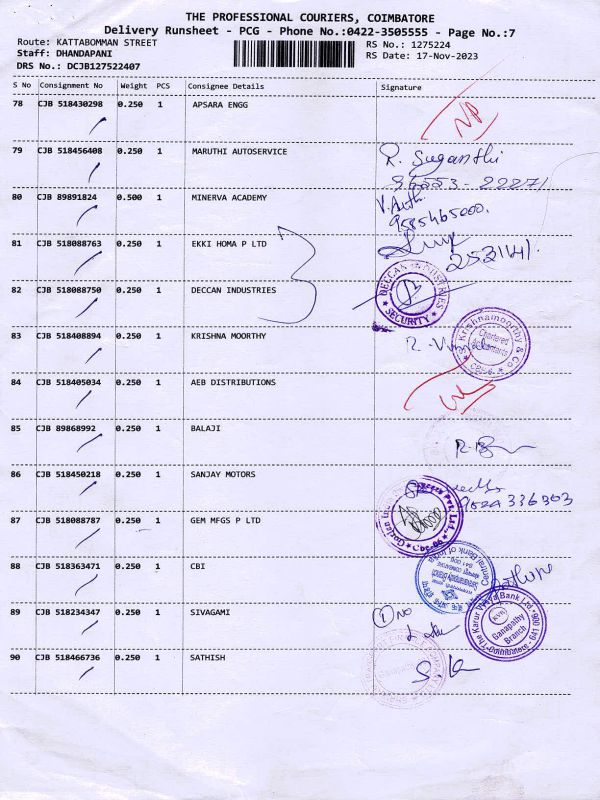 THE PROFESSIONAL COURIERS, COIMBATORE
Delivery Runsheet - PCG - Phone No.:0422-3505555 - Page No.:7
Route: KATTABOMMAN STREET
Staff: DHANDAPANI
DRS No.: DCJB127522407
RS No.: 1275224
RS Date: 17-Nov-2023
S No Consignment No Weight PCS Consignee Details Signature
78 CJB 518430298 0.250 1 APSARA ENGG
79 CJB 518456408 0.250 1 MARUTHI AUTOSERVICE R. Suganthi
80 CJB 89891824 0.500 1 MINERVA ACADEMY
9585465000.
81 CJB 518088763 0.250 1 EKKI HOMA P LTD
2531141.
82 CJB 518088750 0.250 1 DECCAN INDUSTRIES
DECCAN INDUSTRIES
SECURITY
83 CJB 518408894 0.250 1 KRISHNA MOORTHY
Krishnamoorthy & Co
Chartered
Accountants
84 CJB 518405034 0.250 1 AEB DISTRIBUTIONS
85 CJB 89868992 0.250 1 BALAJI
86 CJB 518450218 0.250 1 SANJAY MOTORS
9524336903
87 CJB 518088787 0.250 1 GEM MFGS P LTD
88 CJB 518363471 0.250 1 CBI
Central Bank of India
89 CJB 518234347 0.250 1 SIVAGAMI
The Karur Vysya Bank Ltd
KVB
Ganapathy
Branch
Coimbatore - 641 006
90 CJB 518466736 0.250 1 SATHISH